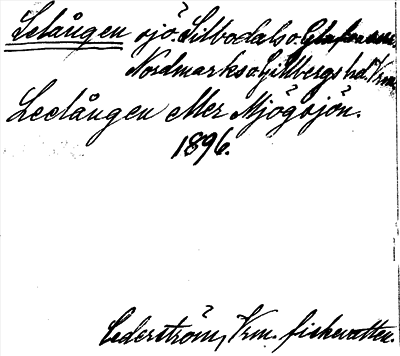 Lelången sjö Silbodals o. Glafva snr.
Nordmarks o Gillbergs hd. Vrm.
Leelången eller Mjögsjön.
1896.
Cederström, Vrm. fiskevatten.